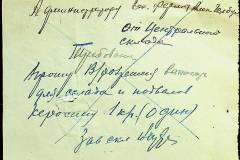 Администратору
От Центрального
склада
Требование
Прошу В/разрешить выписку
для склада и подвалов
керосину 1 кг. (один)
Зав. скл.